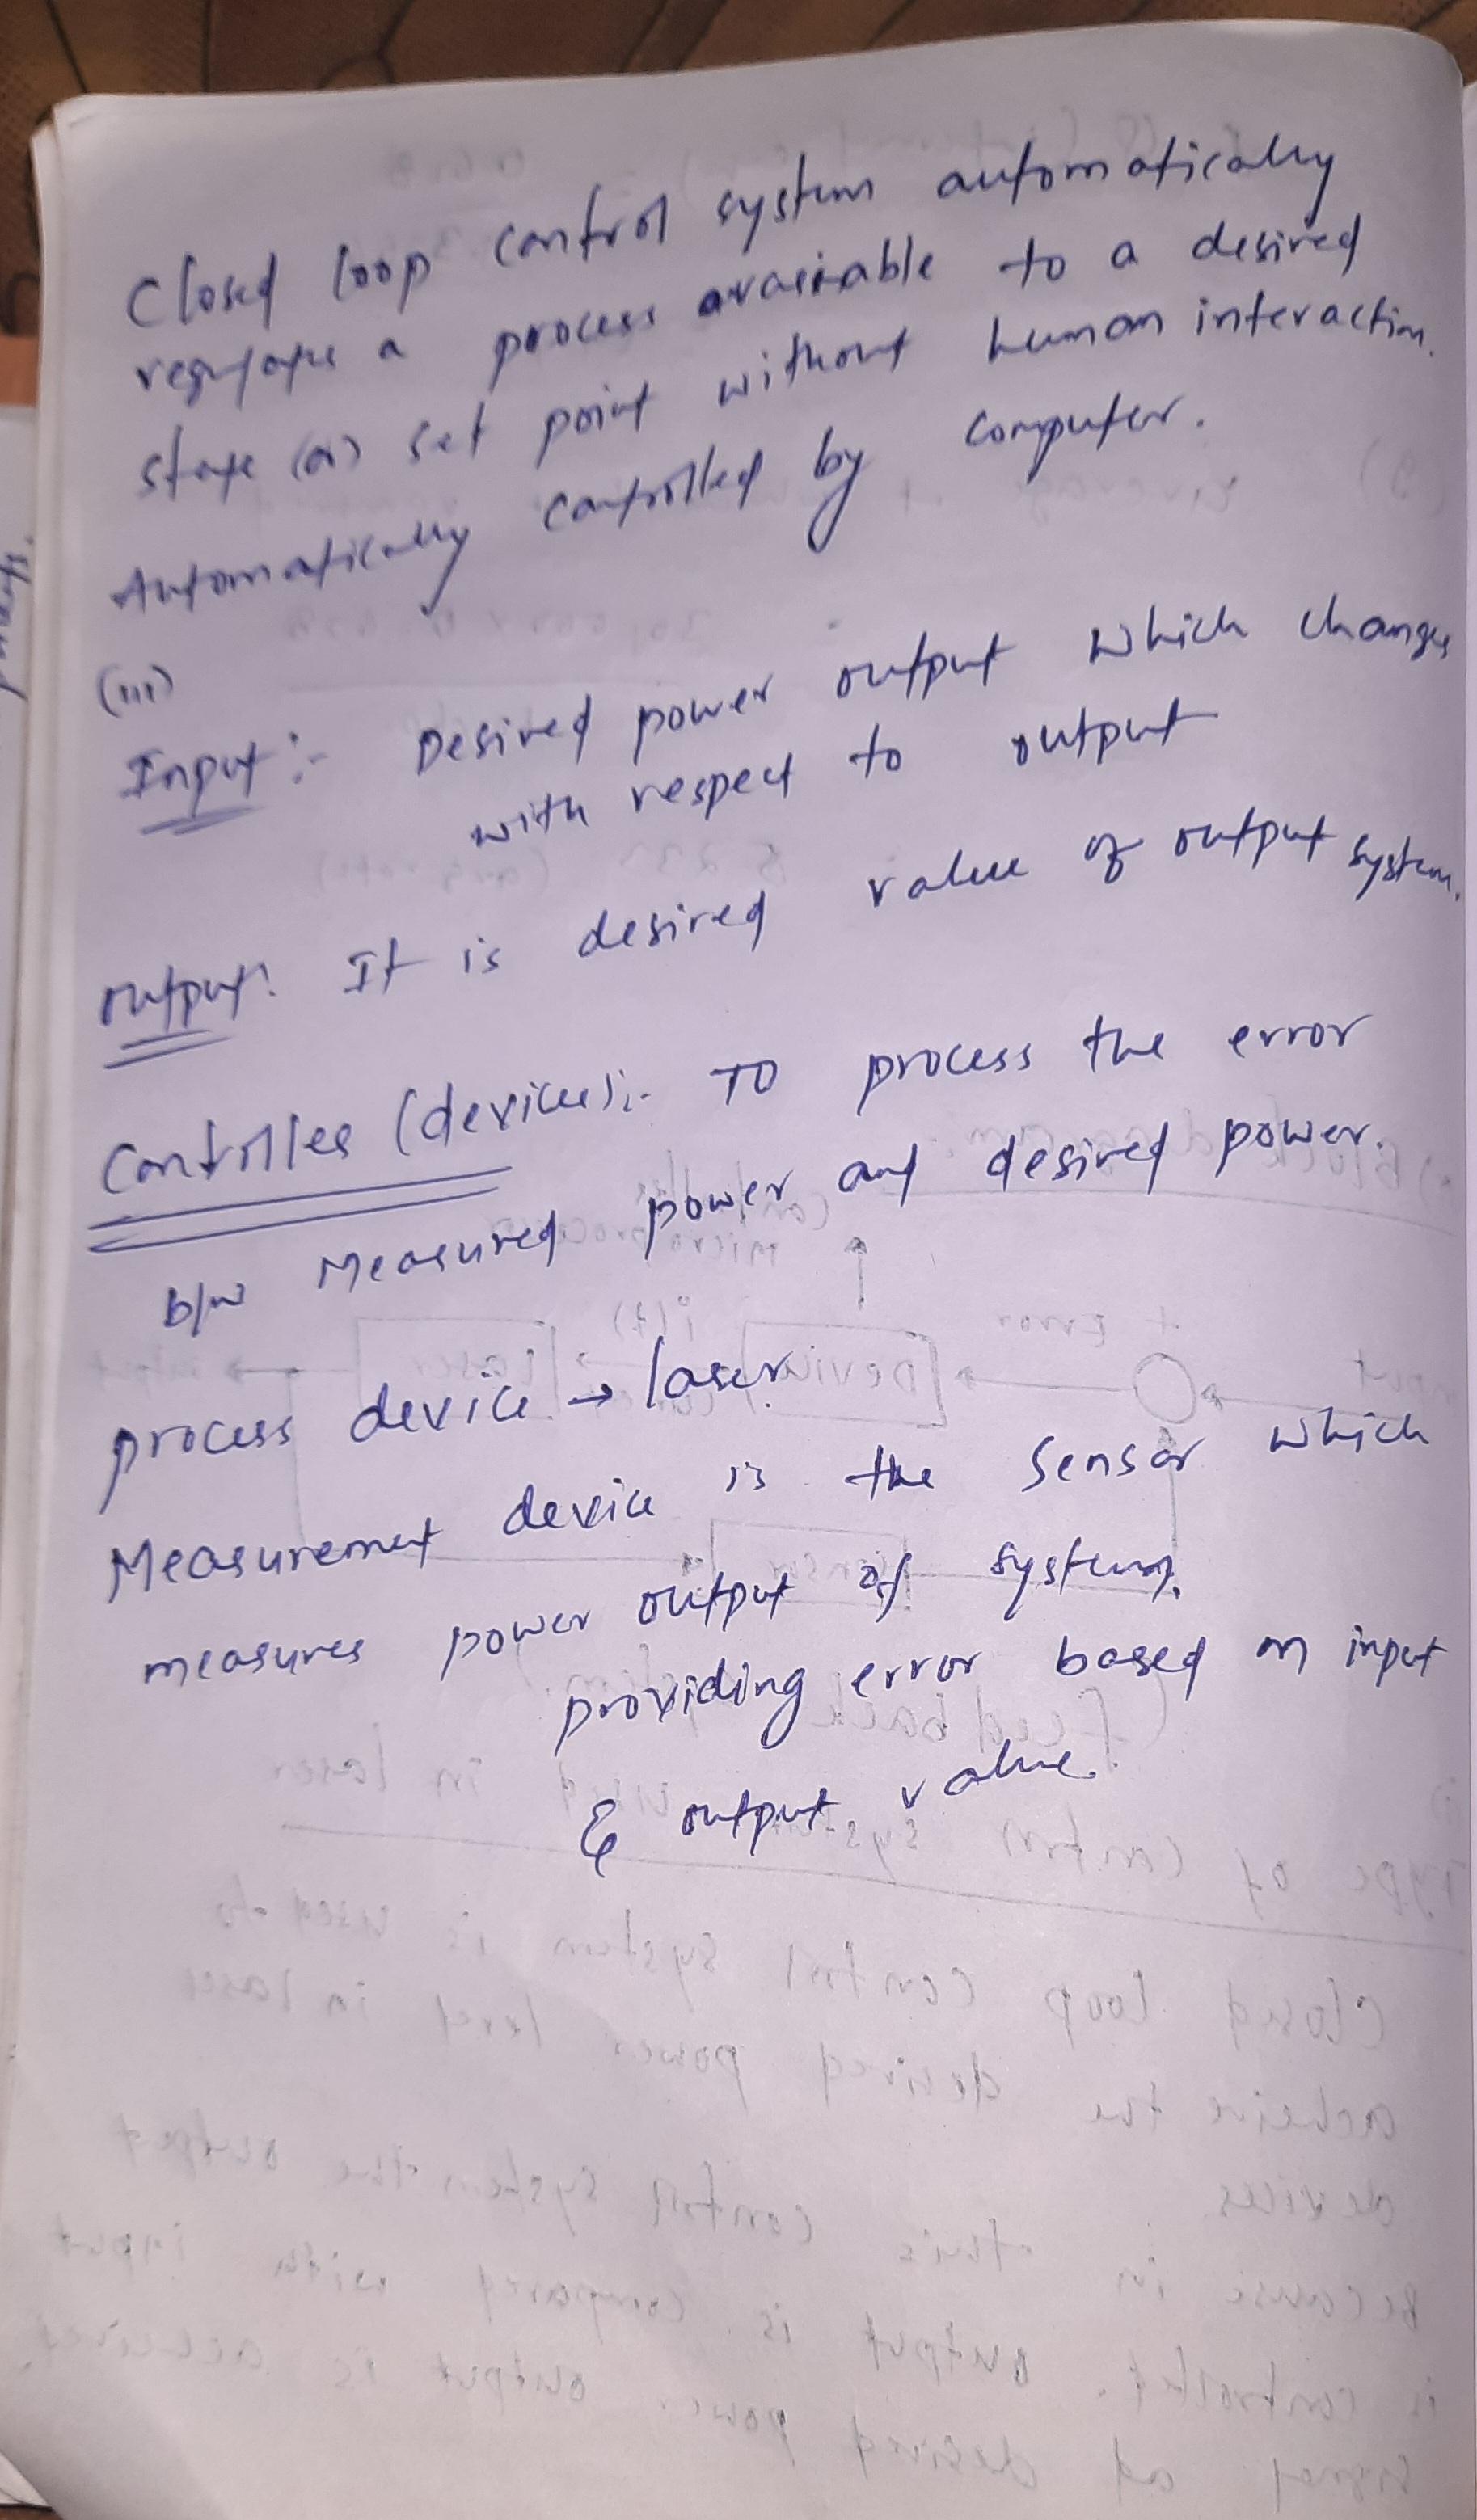 Closed loop control system automatically
regulates a process avariable to a desired
state (or) set point without human interaction.
Automatically controlled by computer.
(iii)
Input :- Desired power output which changes
with respect to output
output: It is desired value of output system.
Controller (device):- To process the error
b/w Measured power and desired power.
process device → laser.
Measurement device is the sensor which
measures power output of system.
providing error based on input
& output value.